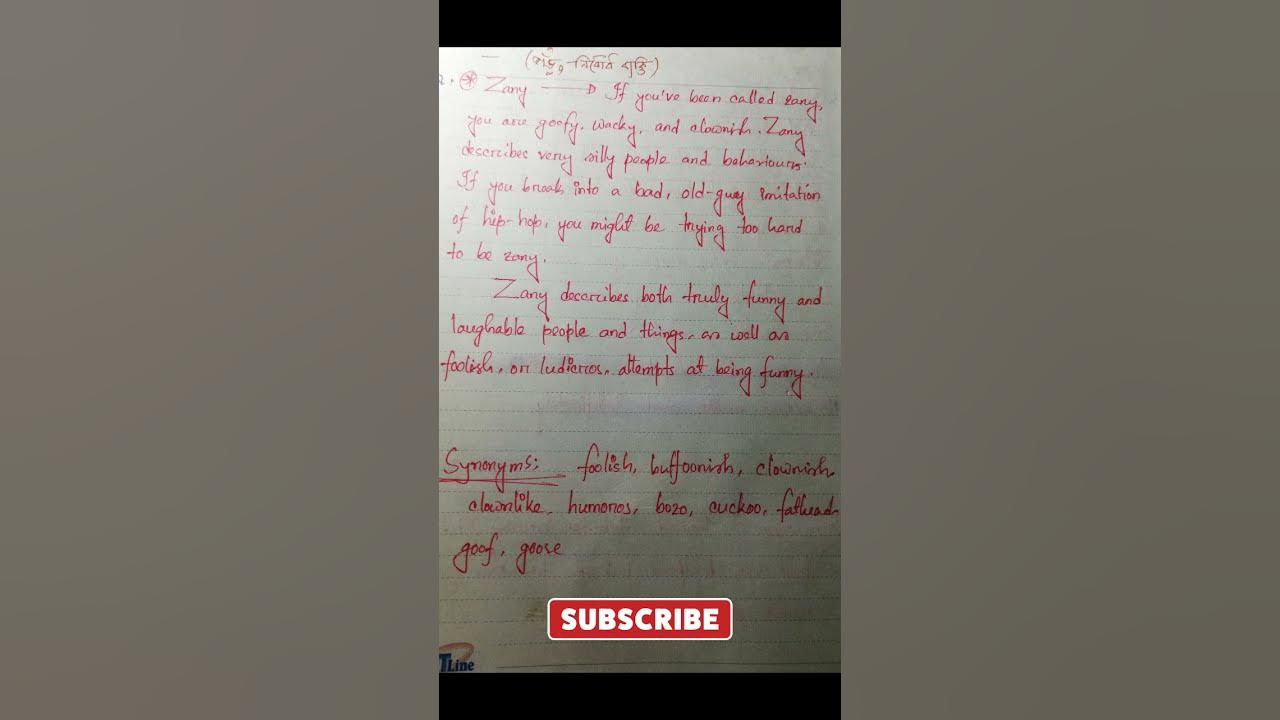 (ভাঁড়, নির্বোধ ব্যক্তি)
Zany → If you've been called zany,
you are goofy, wacky, and clownish. Zany
describes very silly people and behaviours.
If you break into a bad, old-guy imitation
of hip-hop, you might be trying too hard
to be zany.
Zany describes both truly funny and
laughable people and things, as well as
foolish, or ludicros, attempts at being funny.
Synonyms: foolish, buffoonish, clownish
clownlike, humoros, bozo, cuckoo, fathead
goof, goose
SUBSCRIBE
TLine